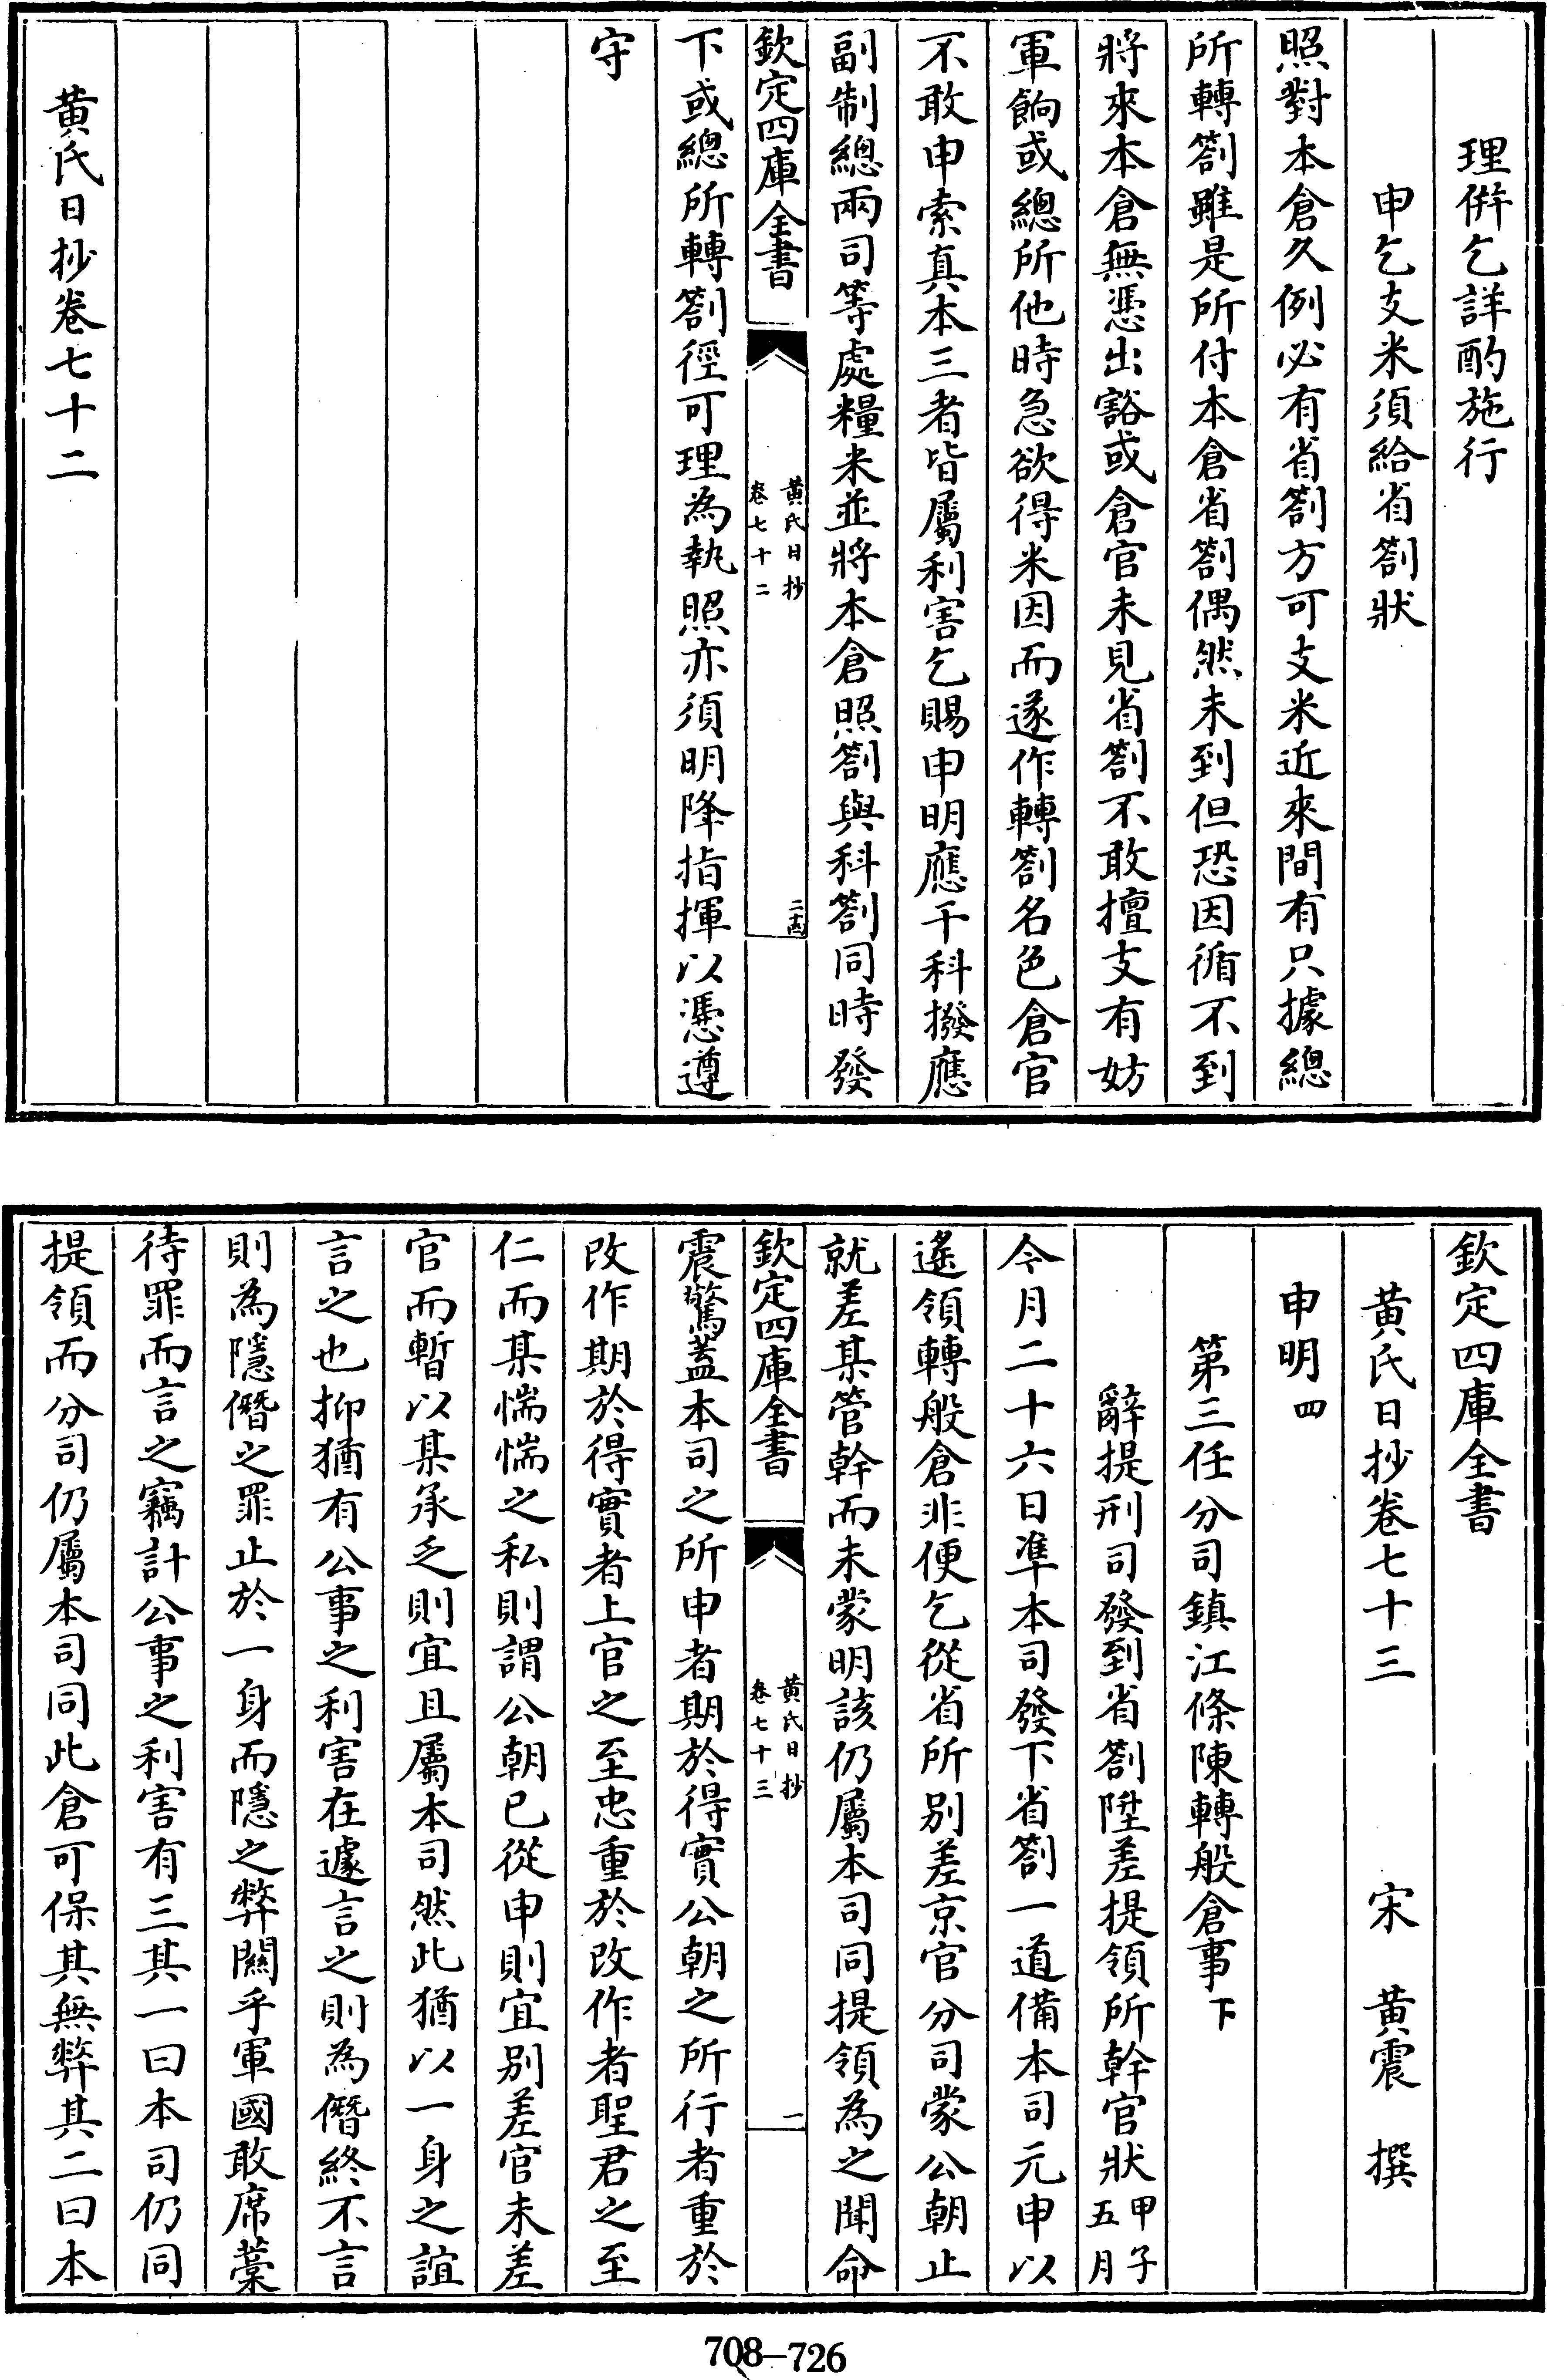 理併乞詳酌施行
申乞支米須給省劄狀
照對本倉久例必有省劄方可支米近來間有只據總
所轉劄雖是所付本倉省劄偶然未到但恐因循不到
將來本倉無憑出豁或倉官未見省劄不敢擅支有妨
軍餉或總所他時急欲得米因而遂作轉劄名色倉官
不敢申索真本三者皆屬利害乞賜申明應干科撥應
副制總兩司等處糧米並將本倉照劄與科劄同時發
欽定四庫全書
黃氏日抄
卷七十二
二十四
下或總所轉劄徑可理為執照亦須明降指揮以憑遵
守
黃氏日抄卷七十二
欽定四庫全書
黃氏日抄卷七十三 宋 黃震 撰
申明四
第三任分司鎮江條陳轉般倉事下
辭提刑司發到省劄陞差提領所幹官狀甲子五月
今月二十六日準本司發下省劄一道備本司元申以
遙領轉般倉非便乞從省所別差京官分司蒙公朝止
就差某管幹而未蒙明該仍屬本司同提領為之聞命
欽定四庫全書
黃氏日抄
卷七十三
一
震驚蓋本司之所申者期於得實公朝之所行者重於
改作期於得實者上官之至忠重於改作者聖君之至
仁而某惴惴之私則謂公朝已從申則宜別差官未差
官而暫以某承乏則宜且屬本司然此猶以一身之誼
言之也抑猶有公事之利害在遽言之則為僭終不言
則為隱僭之罪止於一身而隱之弊關乎軍國敢席藁
待罪而言之竊計公事之利害有三其一曰本司仍同
提領而分司仍屬本司同此倉可保其無弊其二曰本
708-726